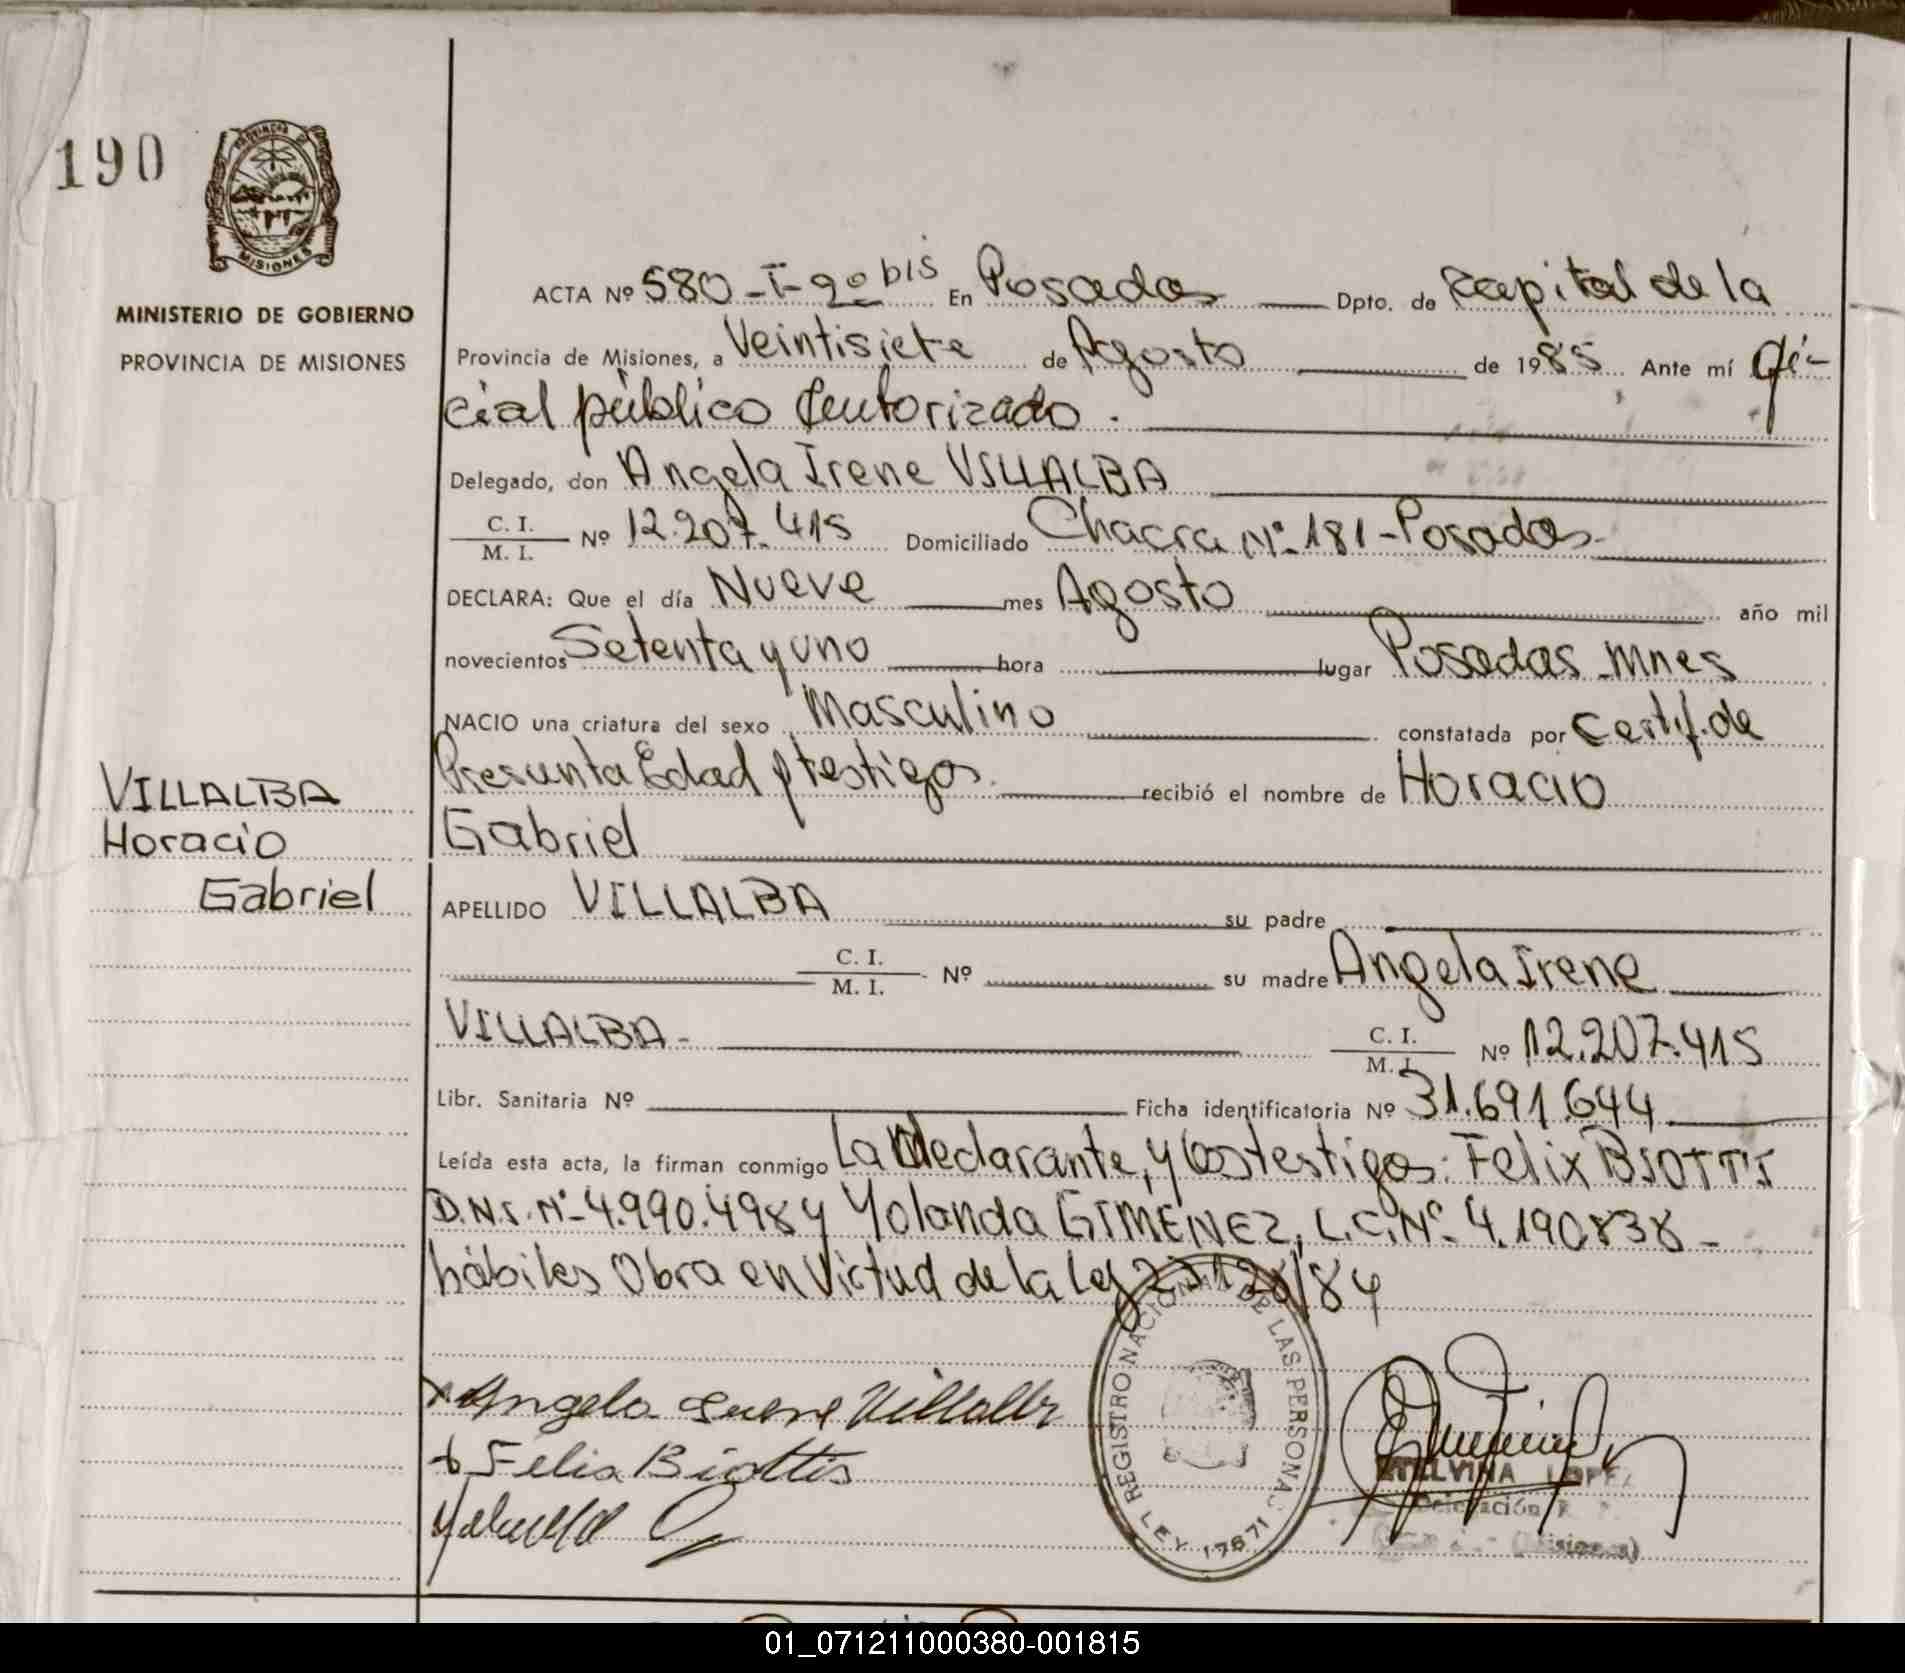 190
PROVINCIA DE
MISIONES
MINISTERIO DE GOBIERNO
PROVINCIA DE MISIONES
ACTA Nº 580-I-2º bis En Posadas Dpto. de Capital de la
Provincia de Misiones, a Veintisiete de Agosto de 1985 Ante mí Ofi-
cial público autorizado.
Delegado, don Angela Irene VILLALBA
C. I.
M. I. Nº 12.207.415 Domiciliado Chacra Nº 181-Posadas
DECLARA: Que el día Nueve mes Agosto año mil
novecientos Setenta y uno hora lugar Posadas Mnes
NACIO una criatura del sexo Masculino constatada por Certif. de
Presunta Edad y testigos. recibió el nombre de Horacio
Gabriel
VILLALBA
Horacio
Gabriel
APELLIDO VILLALBA su padre
C. I.
M. I. Nº su madre Angela Irene
VILLALBA- C. I.
M. I. Nº 12.207.415
Libr. Sanitaria Nº Ficha identificatoria Nº 31.691.644
Leída esta acta, la firman conmigo La declarante, y los testigos: Felix BIOTTI
D.N.I. Nº-4.990.498 y Yolanda GIMENEZ, L.C. Nº-4.190838-
hábiles Obra en Virtud de la Ley /84
Angela Irene Villalba
Felix Biottis
REGISTRO NACIONAL DE LAS PERSONAS
LEY 17671
ETELVINA LOPEZ
Delegación
(Misiones)
01_071211000380-001815